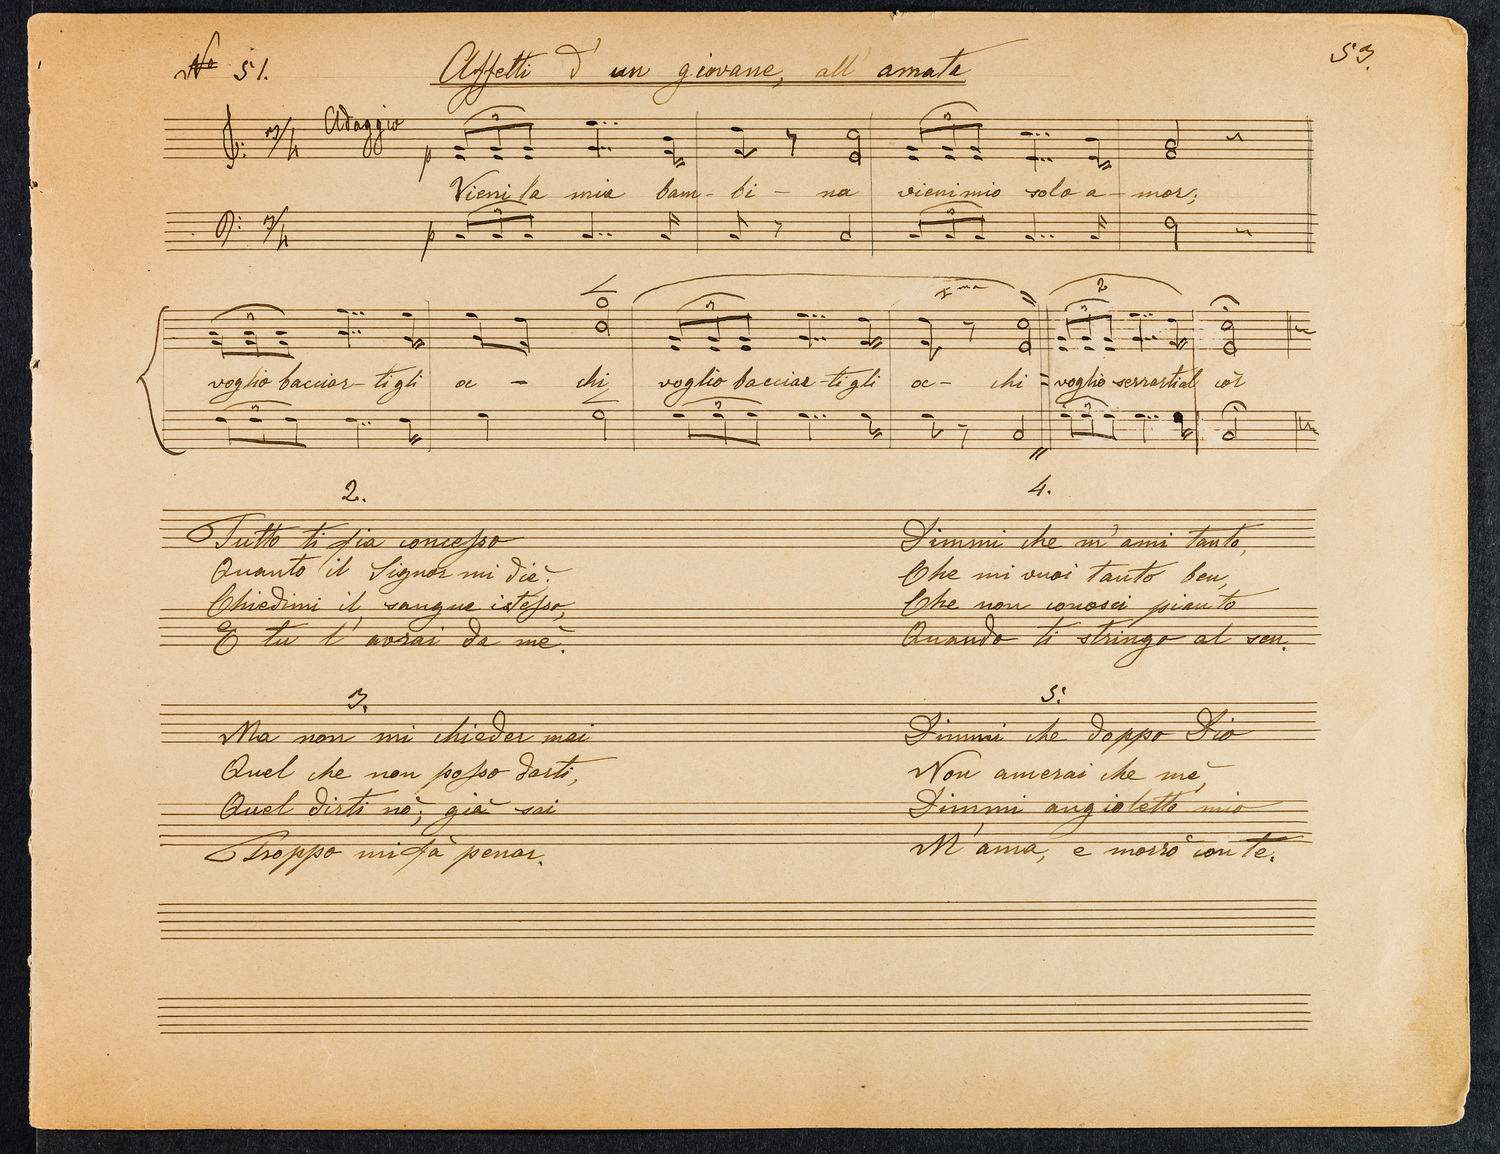 No 51.
Affetti d' un giovane, all' amata
53.
Adaggio
3/4
p
3
3
Vieni la mia bam - bi - na vieni mio solo a - mor;
3/4
p
3
3
1ma
2
3
3
3
voglio bacciar - ti gli o - chi voglio bacciar - ti gli oc - chi = voglio serrarti al cör
3
3
3
2.
Tutto ti fia concesso
Quanto il Signor mi diè:
Chiedimi il sangue istesso,
E tu l' avrai da mè.
3.
Ma non mi chieder mai
Quel che non posso darti,
Quel dirti nò; già sai
Troppo mi fà penar.
4.
Dimmi che m' ami tanto,
Che mi vuoi tanto ben,
Che non conosci pianto
Quando ti stringo al sen.
5.
Dimmi che doppo Dio
Non amerai che mè,
Dimmi angioletto mio
M' ama, e morrò con te.